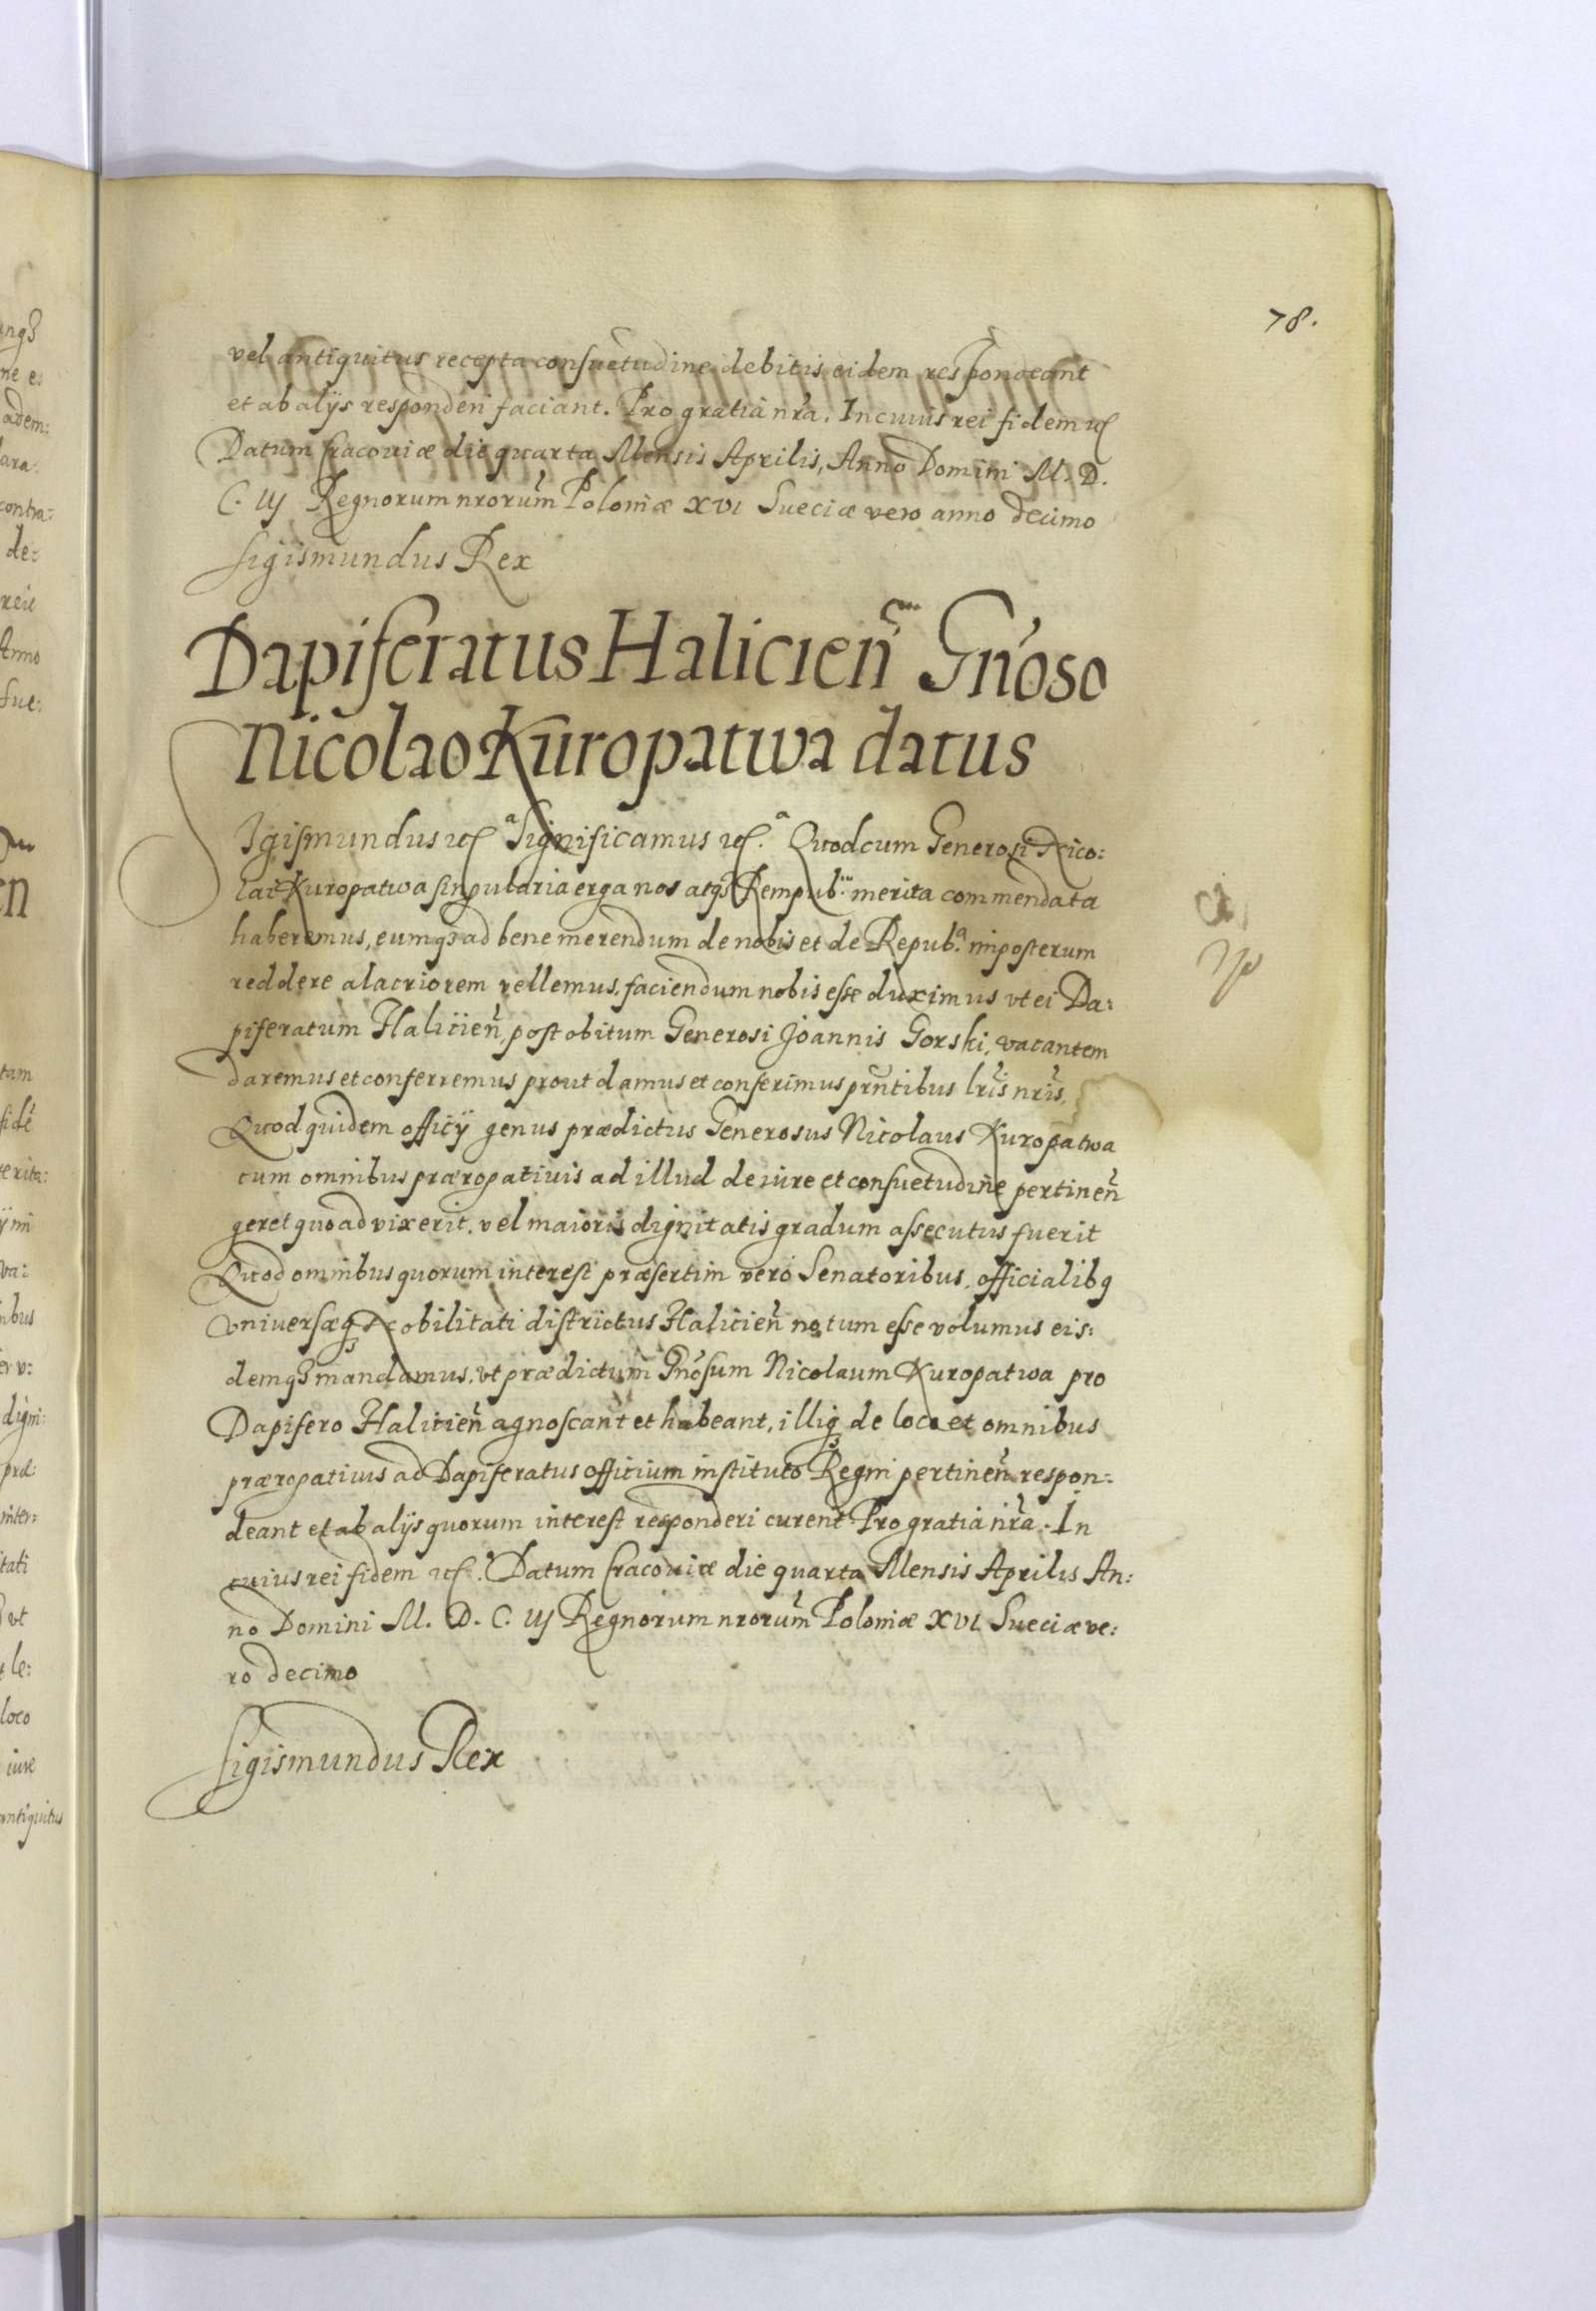 78.
vel antiquitus recepta consuetudine debitis eidem respondeant
et ab alijs responderi faciant. Pro gratia nra. In cuius rei fidem etc
Datum Cracouiæ die quarta Mensis Aprilis, Anno Domini M. D.
C. iij Regnorum nrorum Poloniæ XVI Sueciæ vero anno decimo
Sigismundus Rex
Dapiferatus Halicien Gnoso
Nicolao Kuropatwa datus
Sigismundus etc.a Significamus etc.a Quod cum Generosi Nico:
lai Kuropatwa singularia erga nos atq Rempub: merita commendata
haberemus, eumq ad bene merendum de nobis et de Repub.a imposterum
reddere alacriorem vellemus, faciendum nobis esse duximus vt ei Da:
piferatum Halicien, post obitum Generosi Joannis Gorski, vacantem
daremus et conferremus prout damus et conferimus prntibus lris nris,
Quod quidem officij genus prædictus Generosus Nicolaus Kuropatwa
cum omnibus prærogatiuis ad illud de iure et consuetudine pertinen
geret quoad vixerit, vel maioris dignitatis gradum assecutus fuerit
Quod omnibus quorum interest præsertim vero Senatoribus, officialibq
vniuersæq Nobilitati districtus Halicien notum esse volumus eis:
demq mandamus, vt prædictum Gnosum Nicolaum Kuropatwa pro
Dapifero Halicien agnoscant et habeant, illiq de loco et omnibus
prærogatiuis ad Dapiferatus officium instituto Regni pertinen respon:
deant et ab alijs quorum interest responderi curent Pro gratia nra. In
cuius rei fidem etc. Datum Cracouiæ die quarta Mensis Aprilis An:
no Domini M. D. C. iij Regnorum nrorum Poloniæ XVI Sueciæ ve:
ro decimo
Sigismundus Rex